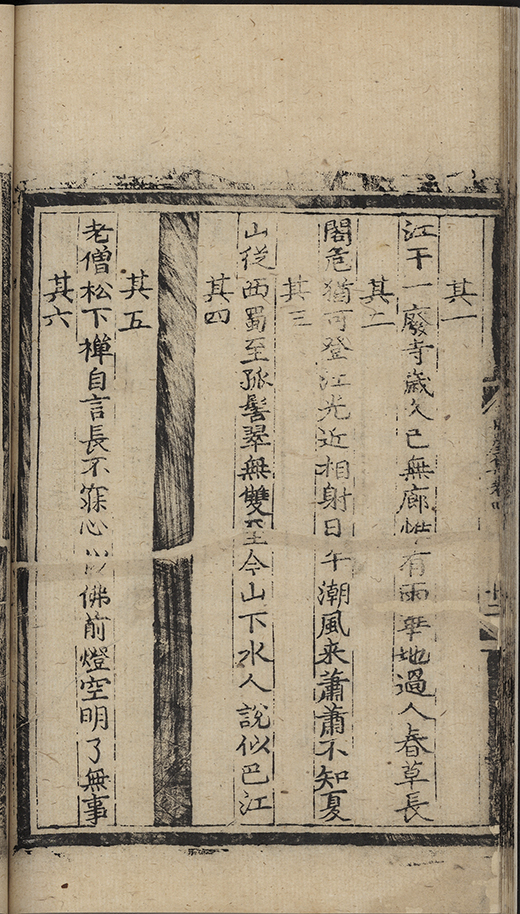 其一
江干一廢寺歲久已無廊惟有兩碑地過人春草長
其二
閣危猶可登江光近相射日午潮風来蕭蕭不知夏
其三
山從西蜀至孤髻翠無雙至今山下水人說似巴江
其四
其五
老僧松下禪自言長不寐心以佛前燈空明了無事
其六